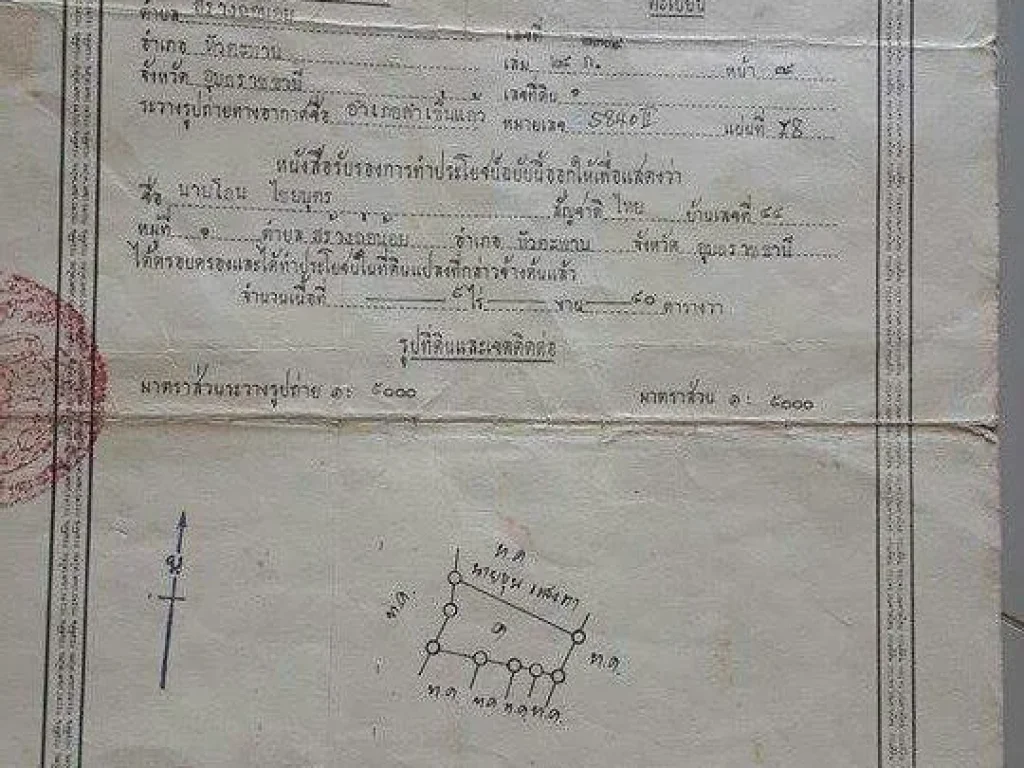 ทะเบียน
ตำบล สร้างถ่อน้อย
เลขที่ ๒๓๙
อำเภอ หัวตะพาน
เล่ม ๒๙ ก. หน้า ๓๙
จังหวัด อุบลราชธานี
เลขที่ดิน ๑
ระวางรูปถ่ายทางอากาศชื่อ อำเภอคำเขื่อนแก้ว
หมายเลข 5840 II แผ่นที่ 58
หนังสือรับรองการทำประโยชน์ฉบับนี้ออกให้เพื่อแสดงว่า
ชื่อ นายโถน ไชยบุตร สัญชาติ ไทย บ้านเลขที่ ๔๔
หมู่ที่ ๑ ตำบล สร้างถ่อน้อย อำเภอ หัวตะพาน จังหวัด อุบลราชธานี
ได้ครอบครองและได้ทำประโยชน์ในที่ดินแปลงที่กล่าวข้างต้นแล้ว
จำนวนเนื้อที่ ๕ ไร่ งาน ๕๐ ตารางวา
รูปที่ดินและเขตติดต่อ
มาตราส่วนระวางรูปถ่าย ๑ : ๕๐๐๐ มาตราส่วน ๑ : ๕๐๐๐
น
ท.ด.
นายขุน แสงทา
ท.ด.
๑
ท.ด.
ท.ด. ท.ด. ท.ด. ท.ด.